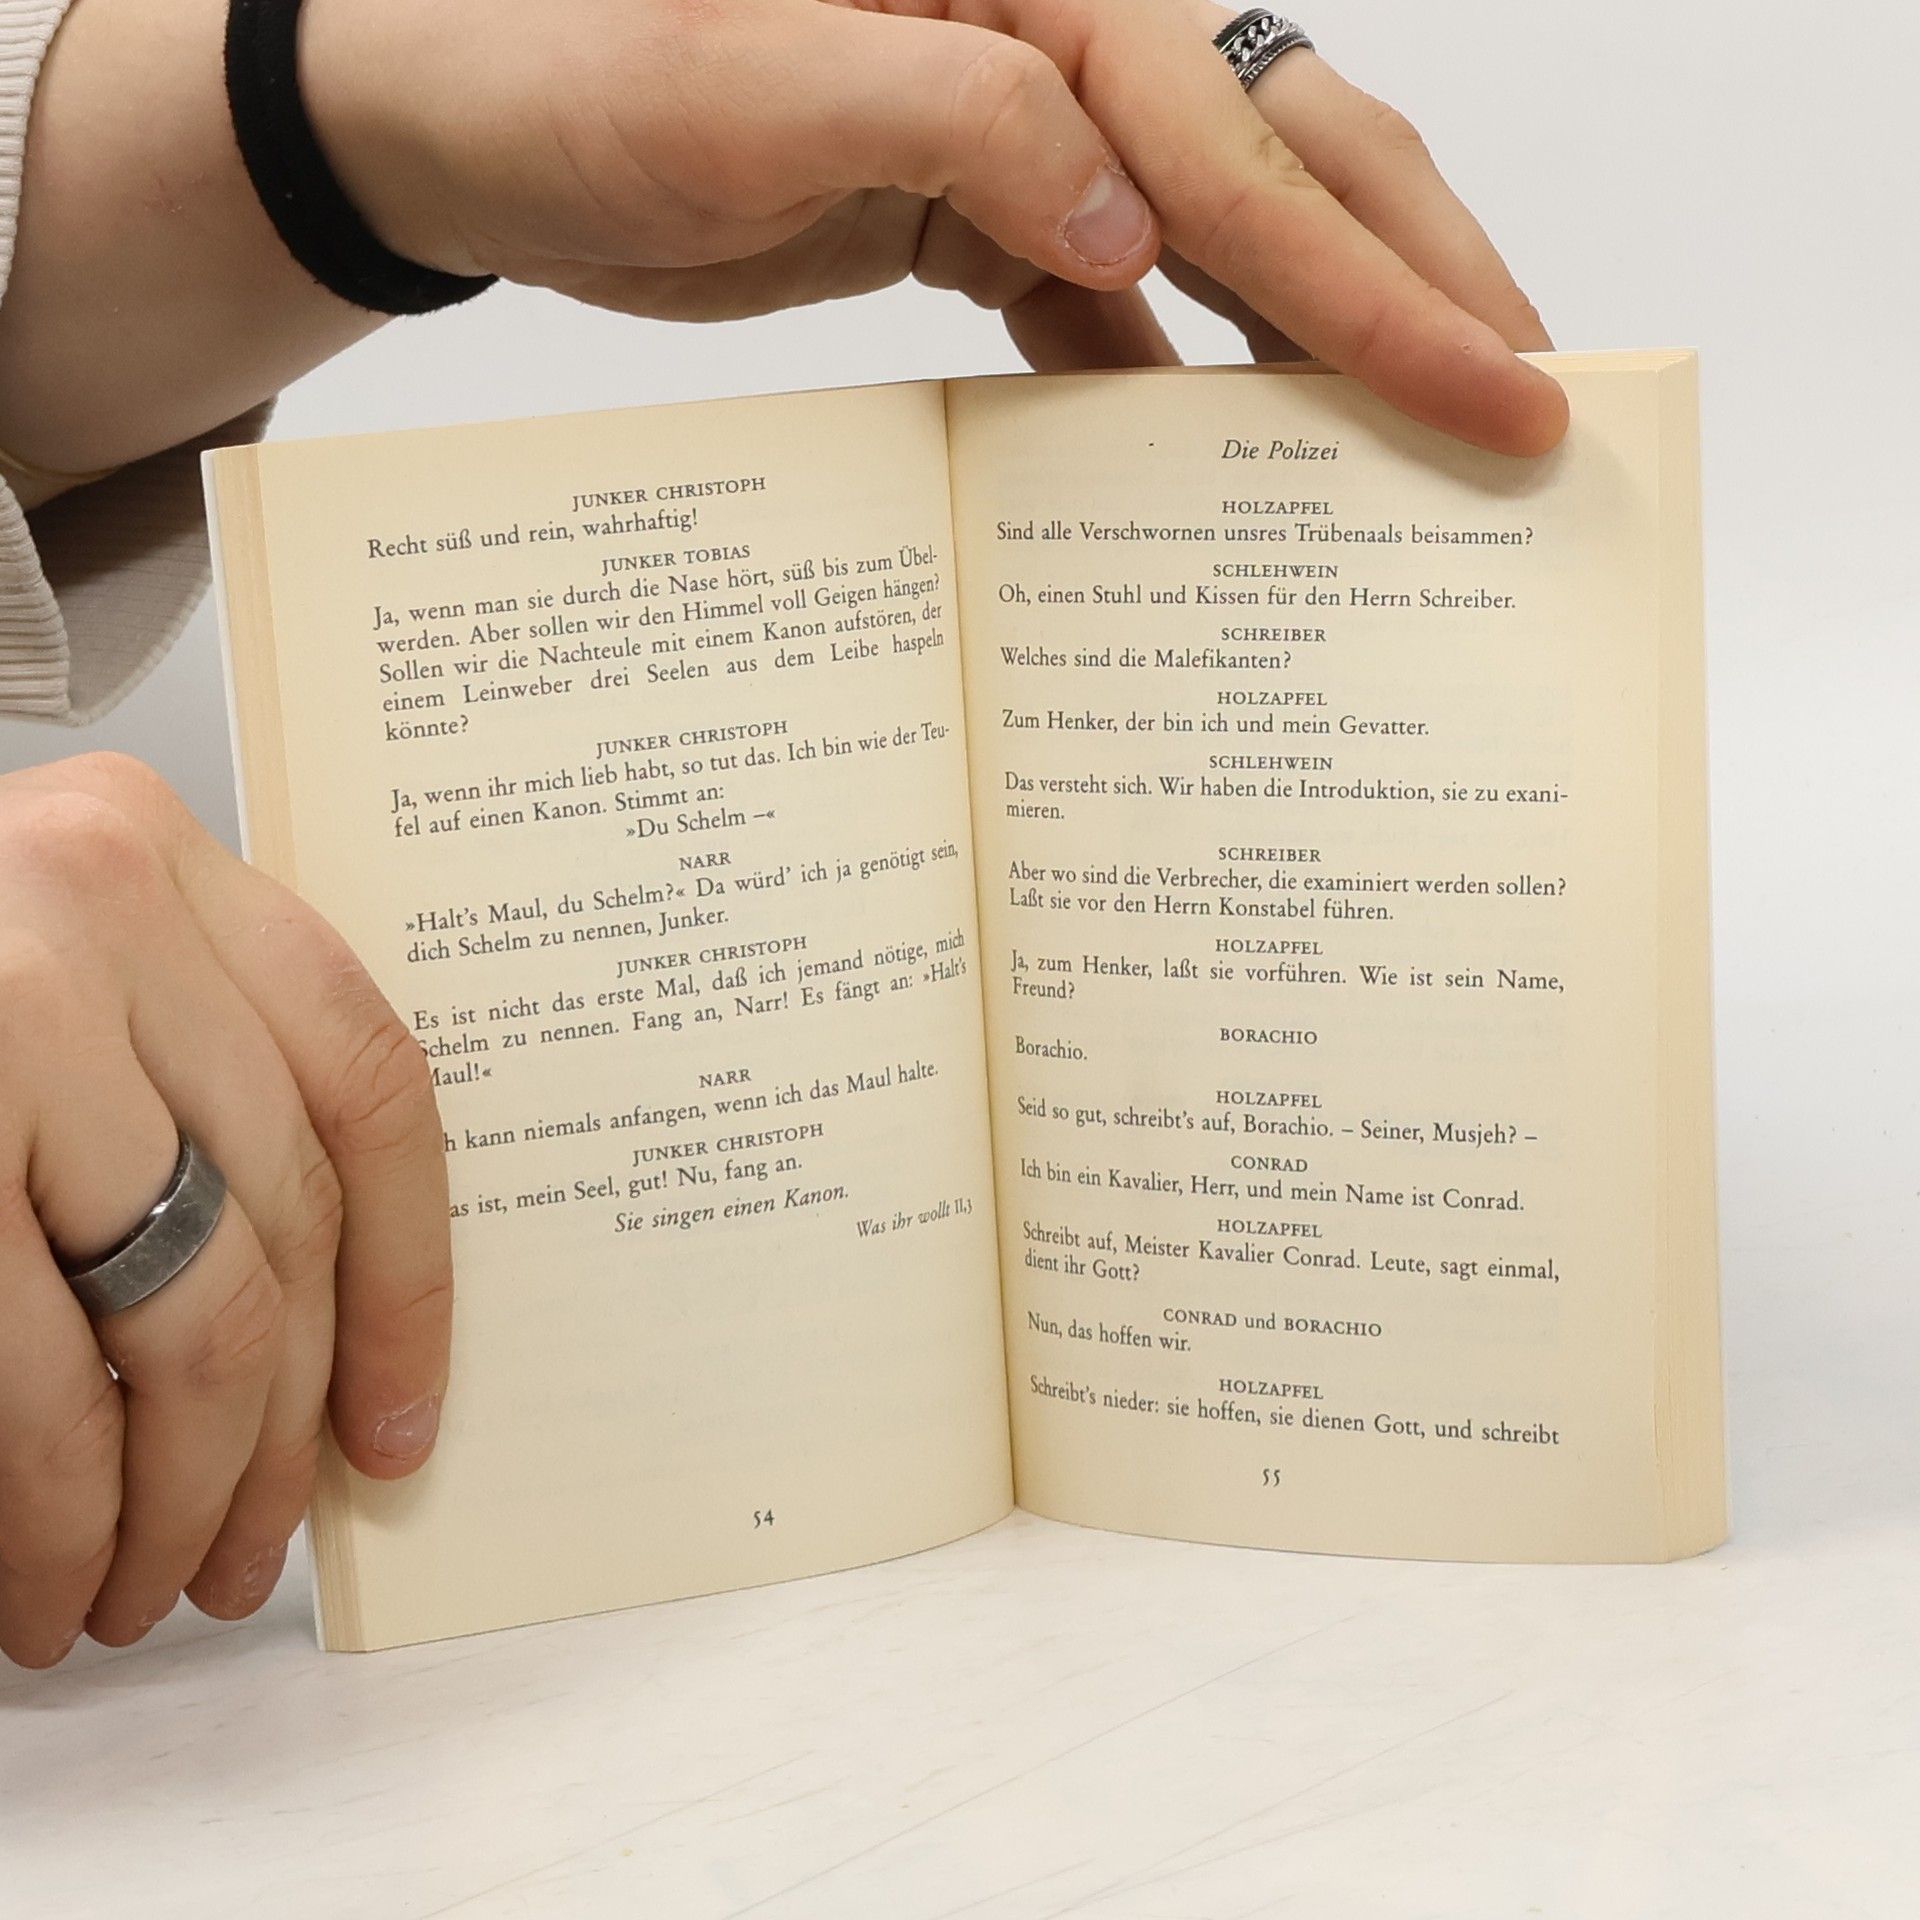 JUNKER CHRISTOPH
Recht süß und rein, wahrhaftig!
JUNKER TOBIAS
Ja, wenn man sie durch die Nase hört, süß bis zum Übel-
werden. Aber sollen wir den Himmel voll Geigen hängen?
Sollen wir die Nachteule mit einem Kanon aufstören, der
einem Leinweber drei Seelen aus dem Leibe haspeln
könnte?
JUNKER CHRISTOPH
Ja, wenn ihr mich lieb habt, so tut das. Ich bin wie der Teu-
fel auf einen Kanon. Stimmt an:
»Du Schelm –«
NARR
»Halt's Maul, du Schelm?« Da würd' ich ja genötigt sein,
dich Schelm zu nennen, Junker.
JUNKER CHRISTOPH
Es ist nicht das erste Mal, daß ich jemand nötige, mich
Schelm zu nennen. Fang an, Narr! Es fängt an: »Halt's
Maul!«
NARR
h kann niemals anfangen, wenn ich das Maul halte.
JUNKER CHRISTOPH
as ist, mein Seel, gut! Nu, fang an.
Sie singen einen Kanon.
Was ihr wollt II,3
54
Die Polizei
HOLZAPFEL
Sind alle Verschwornen unsres Trübenaals beisammen?
SCHLEHWEIN
Oh, einen Stuhl und Kissen für den Herrn Schreiber.
SCHREIBER
Welches sind die Malefikanten?
HOLZAPFEL
Zum Henker, der bin ich und mein Gevatter.
SCHLEHWEIN
Das versteht sich. Wir haben die Introduktion, sie zu exani-
mieren.
SCHREIBER
Aber wo sind die Verbrecher, die examiniert werden sollen?
Laßt sie vor den Herrn Konstabel führen.
HOLZAPFEL
Ja, zum Henker, laßt sie vorführen. Wie ist sein Name,
Freund?
BORACHIO
Borachio.
HOLZAPFEL
Seid so gut, schreibt's auf, Borachio. – Seiner, Musjeh? –
CONRAD
Ich bin ein Kavalier, Herr, und mein Name ist Conrad.
HOLZAPFEL
Schreibt auf, Meister Kavalier Conrad. Leute, sagt einmal,
dient ihr Gott?
CONRAD und BORACHIO
Nun, das hoffen wir.
HOLZAPFEL
Schreibt's nieder: sie hoffen, sie dienen Gott, und schreibt
55